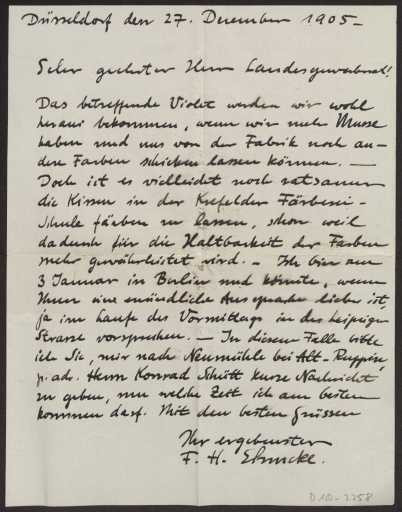 Düsseldorf den 27. Dezember 1905 –
Sehr geehrter Herr Landesgewerberath!
Das betreffende Violet werden wir wohl
heraus bekommen, wenn wir mehr Musse
haben und uns von der Fabrik noch an-
dere Farben schicken lassen können. –
Doch ist es vielleicht noch ratsamer
die Kissen in der Krefelder Färberei-
Schule färben zu lassen, schon weil
dadurch für die Haltbarkeit der Farben
mehr gewährleistet wird. – Ich bin am
3 Januar in Berlin und könnte, wenn
Ihnen eine mündliche Aussprache lieber ist,
ja im Laufe des Vormittags in der Leipziger
Strasse vorsprechen. – In diesem Falle bitte
ich Sie, mir nach Neumühle bei Alt-Ruppin,
p. adr. Herrn Konrad Schütt kurze Nachricht
zu geben, um welche Zeit ich am besten
kommen darf. Mit den besten Grüssen
Ihr ergebenster
F. H. Ehmcke.
D 10-2258